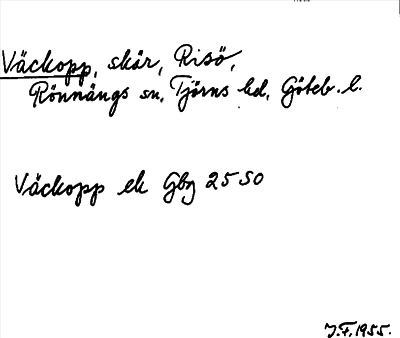 Väckopp, skär, Risö,
Rönnängs sn, Tjörns hd, Göteb. l.
Väckopp ek Gbg 25 SO
J.F. 1955.